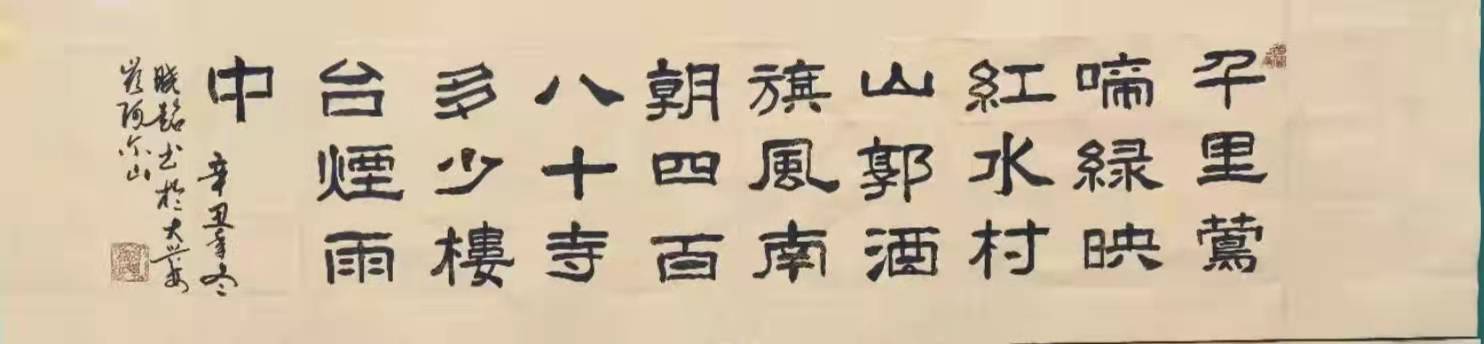 千里鶯
啼緑映
紅水村
山郭酒
旗風南
朝四百
八十寺
多少樓
台煙雨
中 辛丑年冬
晓铭书於大兴安
岭阿尔山